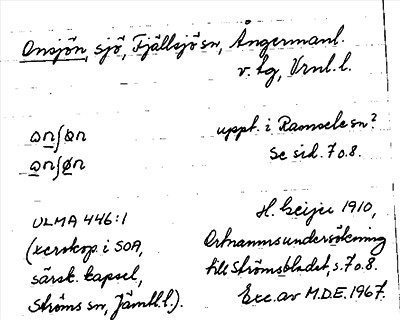 Onsjön, sjö, Fjällsjö sn, Ångermanl.
v. tg, Vrnl. l.
uppt. i Ramsele sn?
Se sid. 7 o. 8.
ULMA 446:1
(xerokop. i SOA,
särsk. kapsel,
Ströms sn, Jämtl.).
H. Geijer 1910,
Ortnamnsundersökning
till Strömsbladet, s. 7 o. 8.
Exc. av M.D.E. 1967.